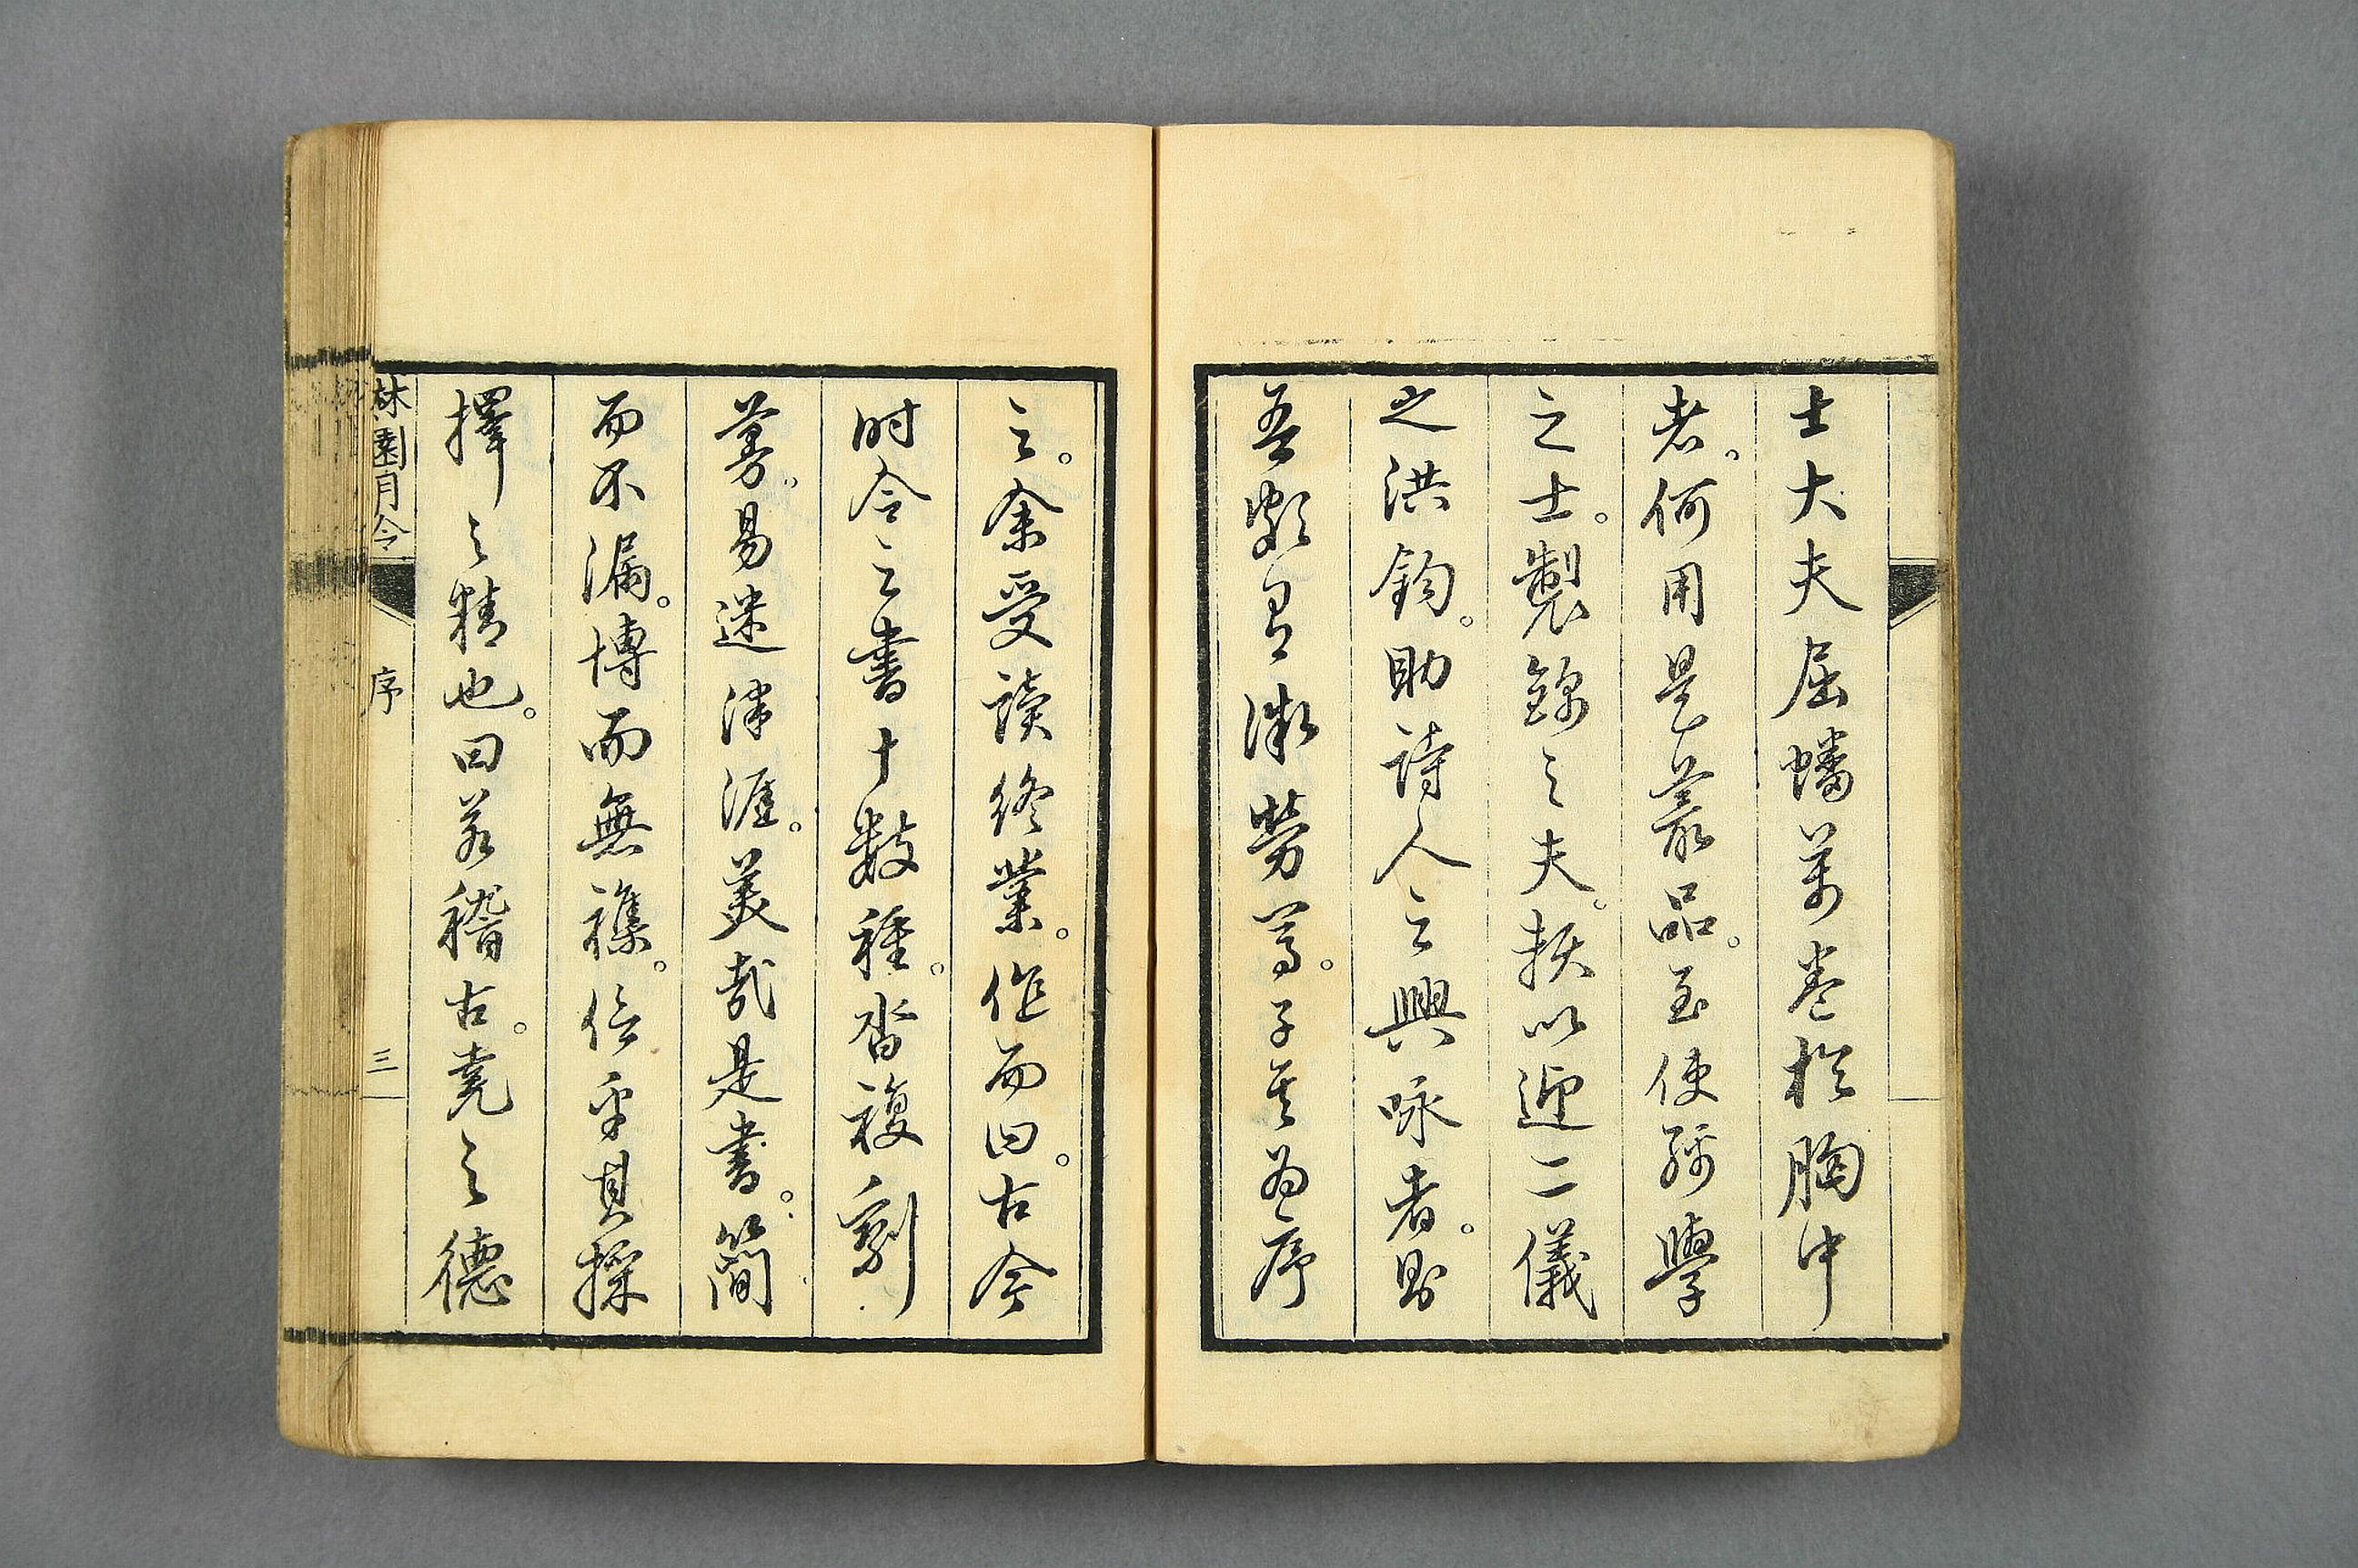 士大夫屈蟠萬卷於胸中
者。何用是叢品。至使孺學
之士。製錦之夫。掞以迎二儀
之洪鈞。助詩人之興咏者。則
吾勞焉。子其為序
之。余受讀終業。作而曰。古今
时令之書十数種。沓複
易迷津涯。美哉是書。簡
而不漏。博而無襍。信乎其採
擇之精也。曰若稽古。堯之德
林園月令
序
三